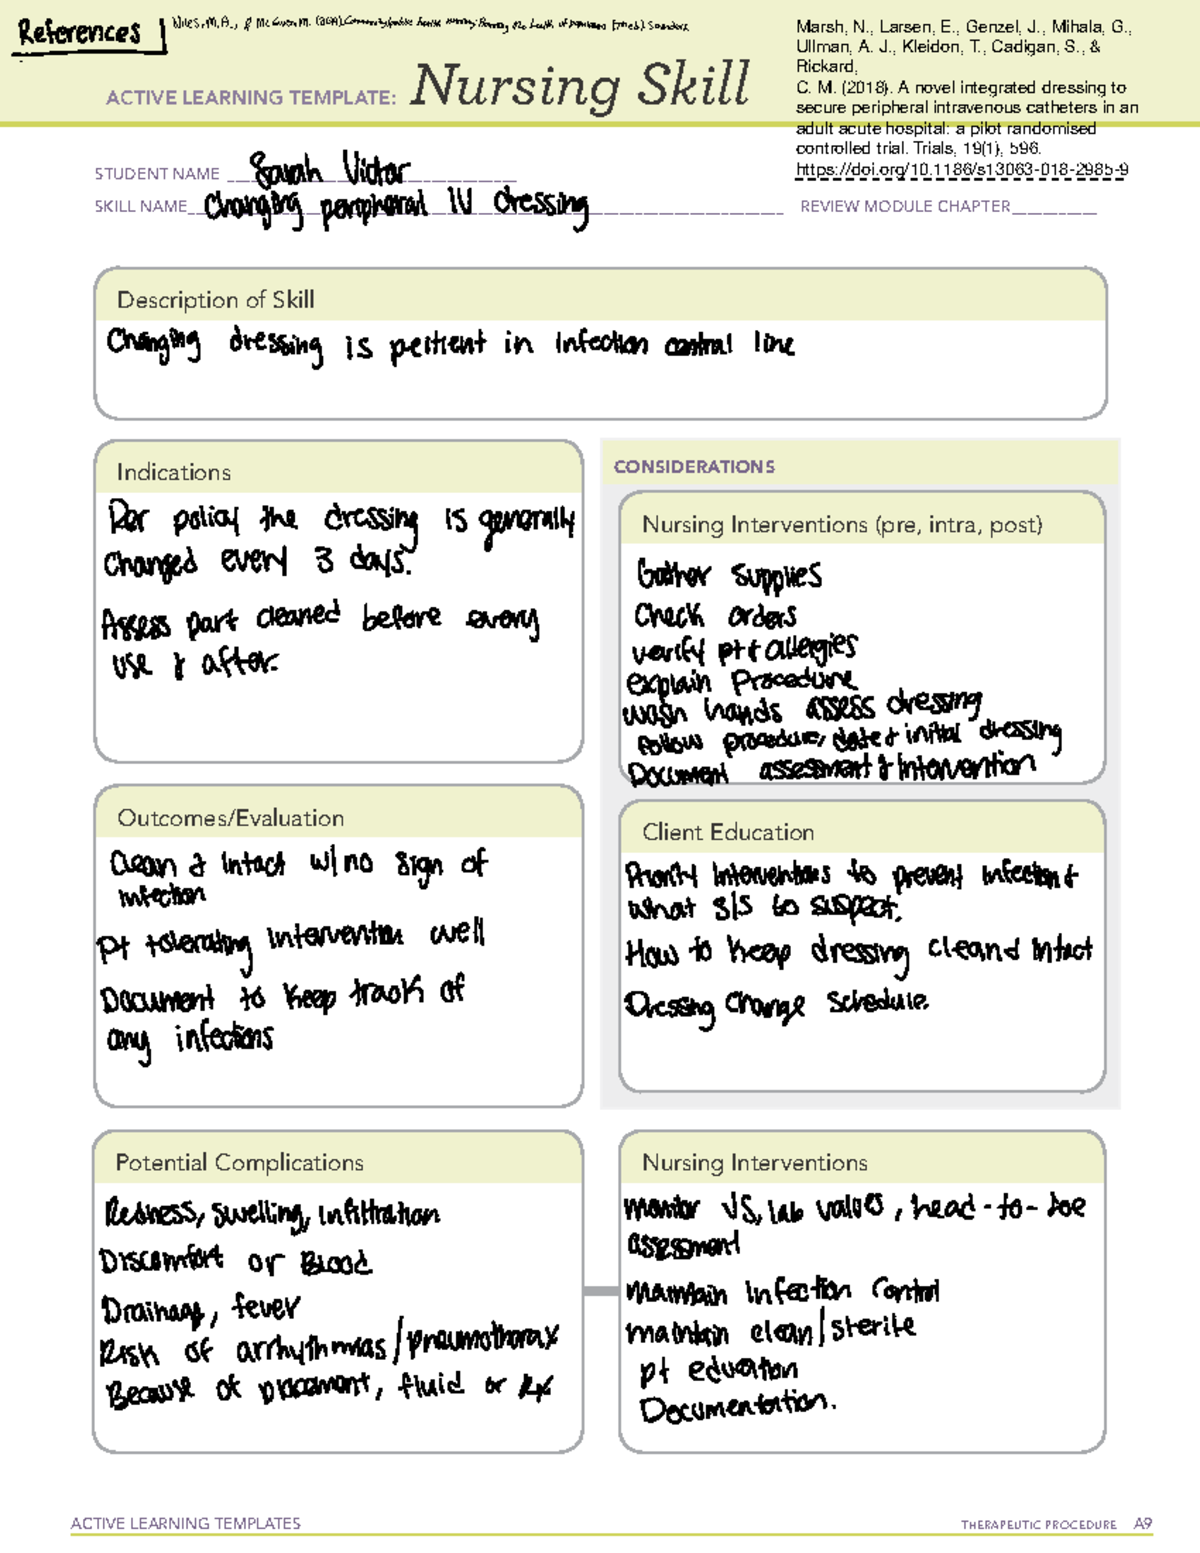 References
Nies, M. A., & McEwen, M. (2019). Community/public health nursing: Promoting the health of populations Saunders
Marsh, N., Larsen, E., Genzel, J., Mihala, G.,
Ullman, A. J., Kleidon, T., Cadigan, S., &
Rickard,
C. M. (2018). A novel integrated dressing to
secure peripheral intravenous catheters in an
adult acute hospital: a pilot randomised
controlled trial. Trials, 19(1), 596.
https://doi.org/10.1186/s13063-018-2985-9
ACTIVE LEARNING TEMPLATE: Nursing Skill
STUDENT NAME Sarah Victor
SKILL NAME Changing peripheral IV dressing
REVIEW MODULE CHAPTER
Description of Skill
Changing dressing is pertient in infection control line
Indications
Per policy the dressing is generally
changed every 3 days.
Assess part cleaned before every
use & after.
CONSIDERATIONS
Nursing Interventions (pre, intra, post)
Gather supplies
Check orders
verify pt & allergies
explain Procedure
wash hands assess dressing
follow procedure, date & initial dressing
Document assessment & Intervention
Outcomes/Evaluation
Clean & Intact w/ no sign of
infection
Pt tolerating intervention well
Document to keep track of
any infections
Client Education
Priority Interventions to prevent infection &
what S/S to suspect.
How to keep dressing clean & Intact
Dressing change schedule.
Potential Complications
Redness, swelling, infiltration
Discomfort or Blood
Drainage, fever
Risk of arrhythmias/pneumothorax
Because of placement, fluid or Rx
Nursing Interventions
monitor VS, lab values, head-to-toe
assessment
maintain infection control
maintain clean/sterile
pt education
Documentation.
ACTIVE LEARNING TEMPLATES
THERAPEUTIC PROCEDURE A9